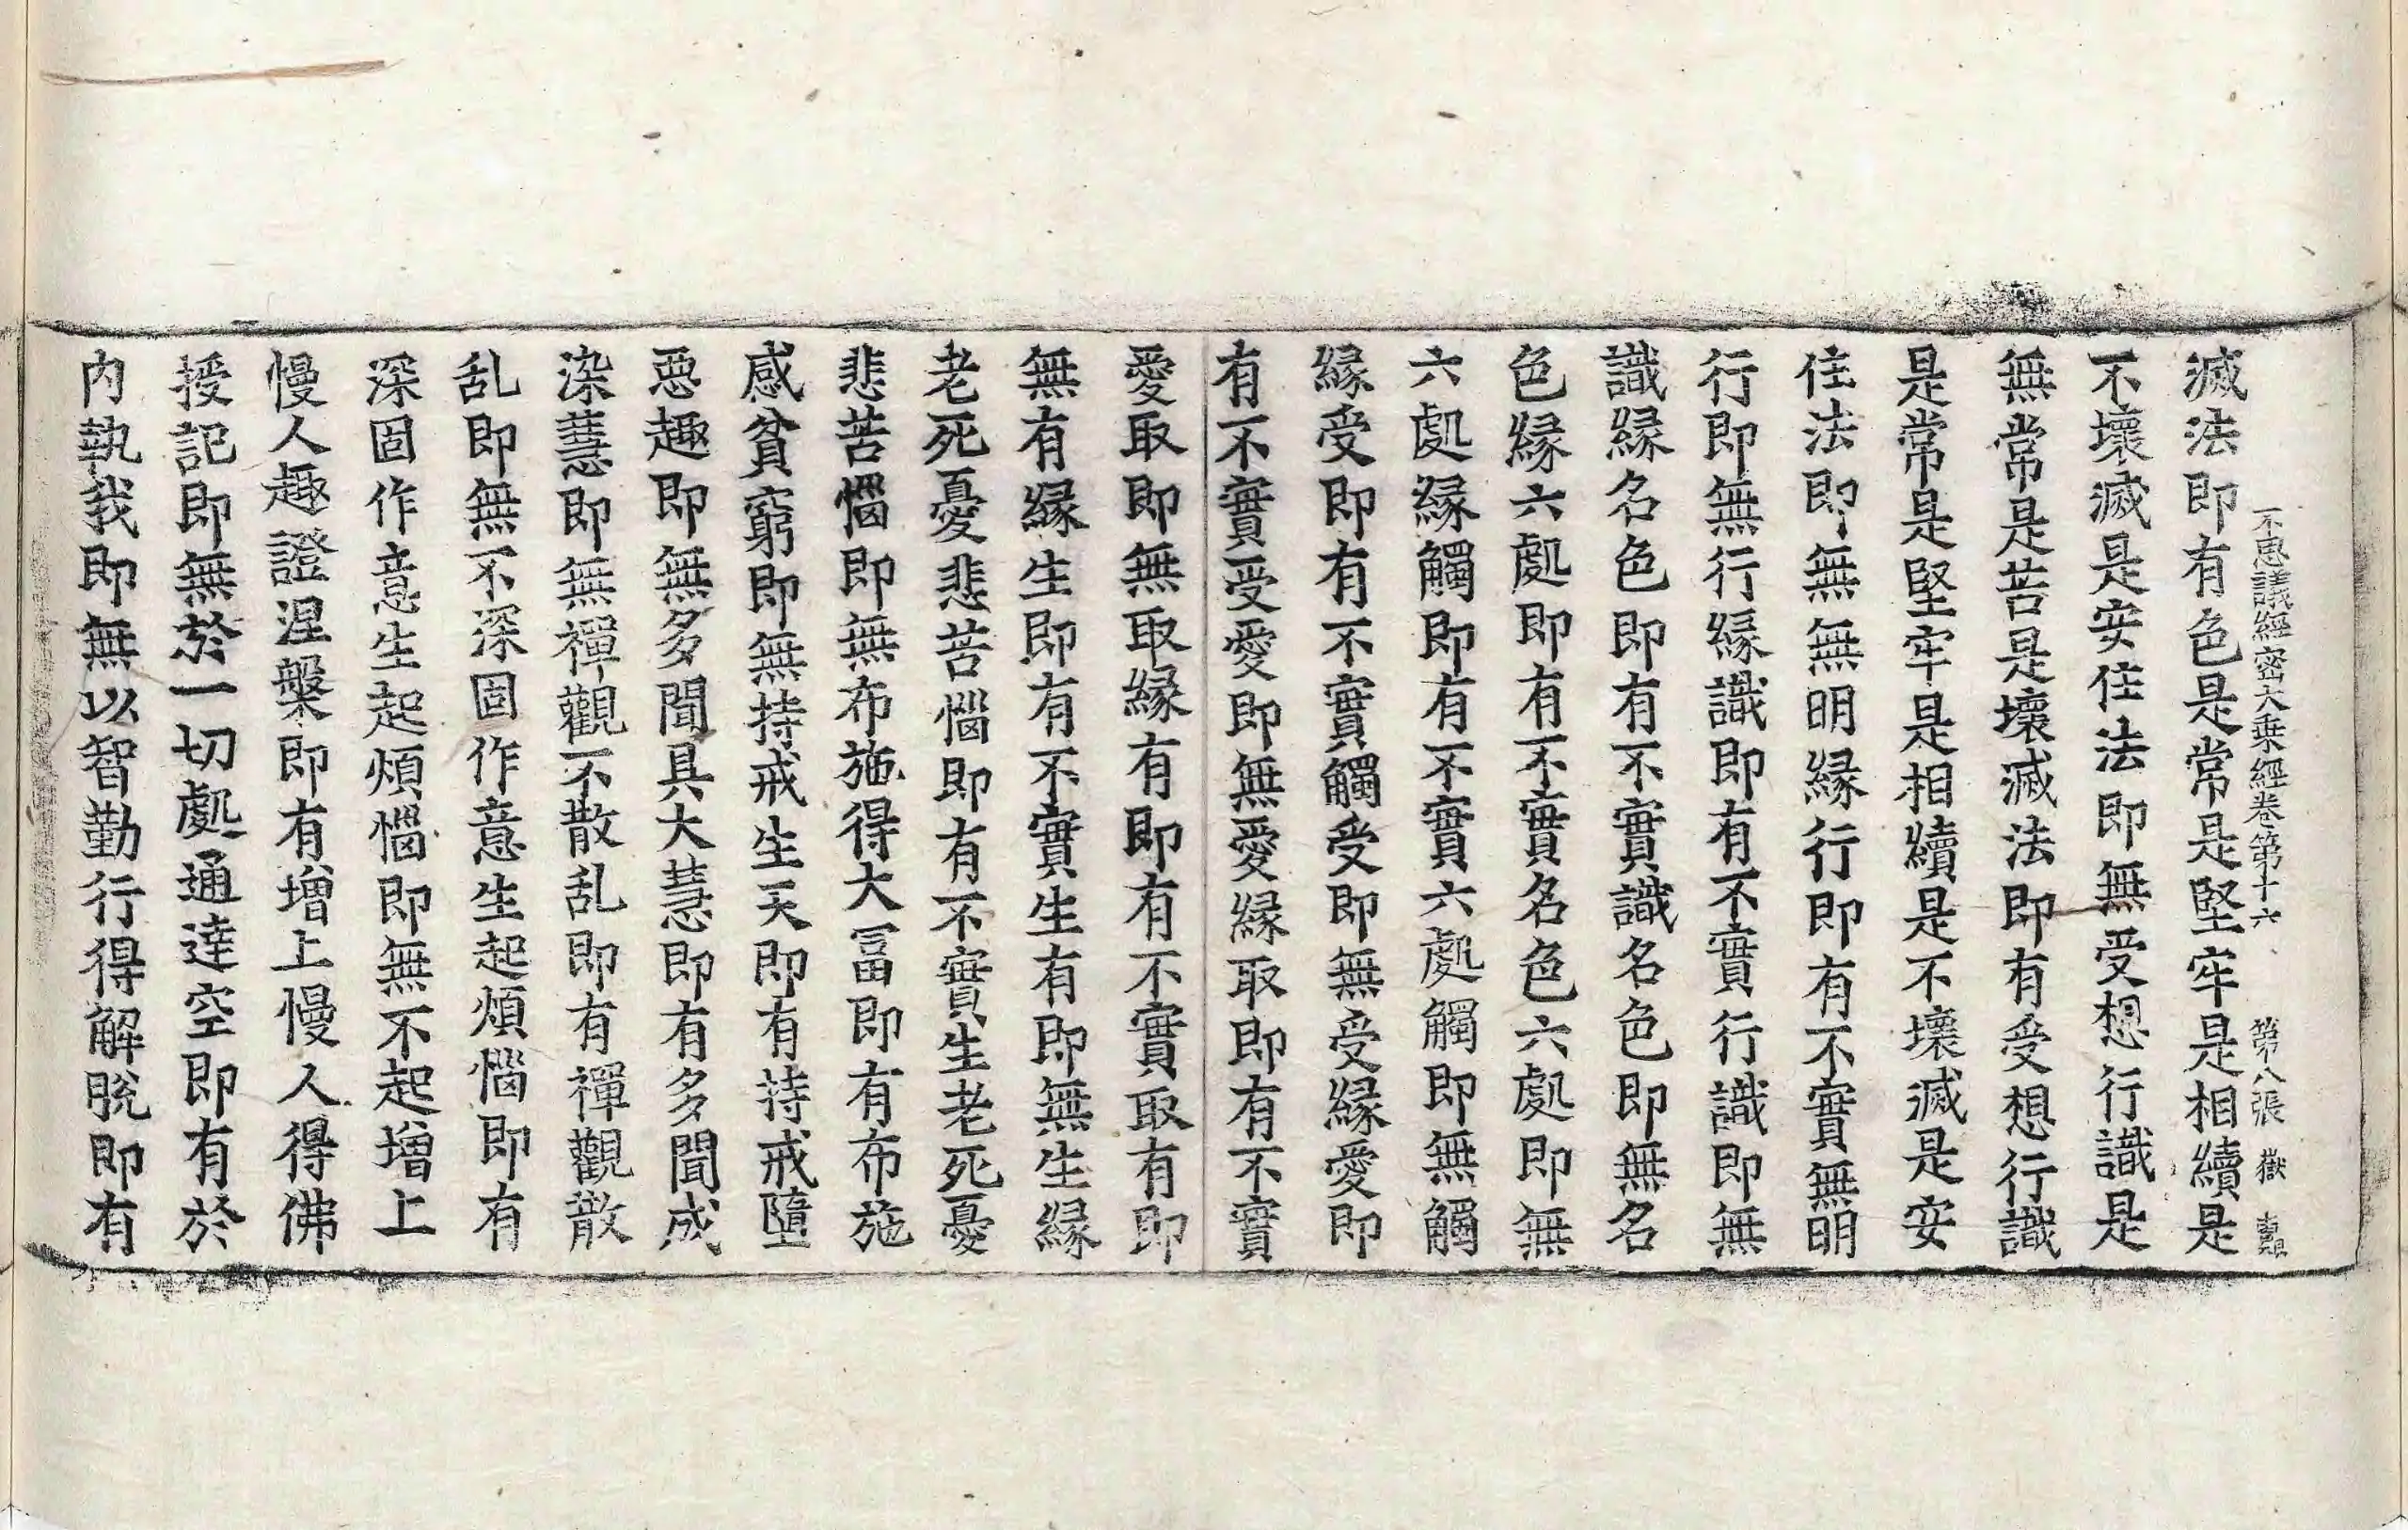 不思議經密大乗經卷第十六 第八張 嶽
滅法即有色是常是堅牢是相續是
不壞滅是安住法即無受想行識是
無常是苦是壞滅法即有受想行識
是常是堅牢是相續是不壞滅是安
住法即無無明縁行即有不實無明
行即無行縁識即有不實行識即無
識縁名色即有不實識名色即無名
色縁六處即有不實名色六處即無
六處縁觸即有不實六處觸即無觸
縁受即有不實觸受即無受縁愛即
有不實受愛即無愛縁取即有不實
愛取即無取縁有即有不實取有即
無有縁生即有不實生有即無生縁
老死憂悲苦惱即有不實生老死憂
悲苦惱即無布施得大冨即有布施
感貧窮即無持戒生天即有持戒墮
惡趣即無多聞具大慧即有多聞成
染慧即無禪觀不散乱即有禪觀散
乱即無不深固作意生起煩惱即有
深固作意生起煩惱即無不起增上
慢人趣證涅槃即有增上慢人得佛
授記即無於一切處通達空即有於
内執我即無以智勤行得解脫即有